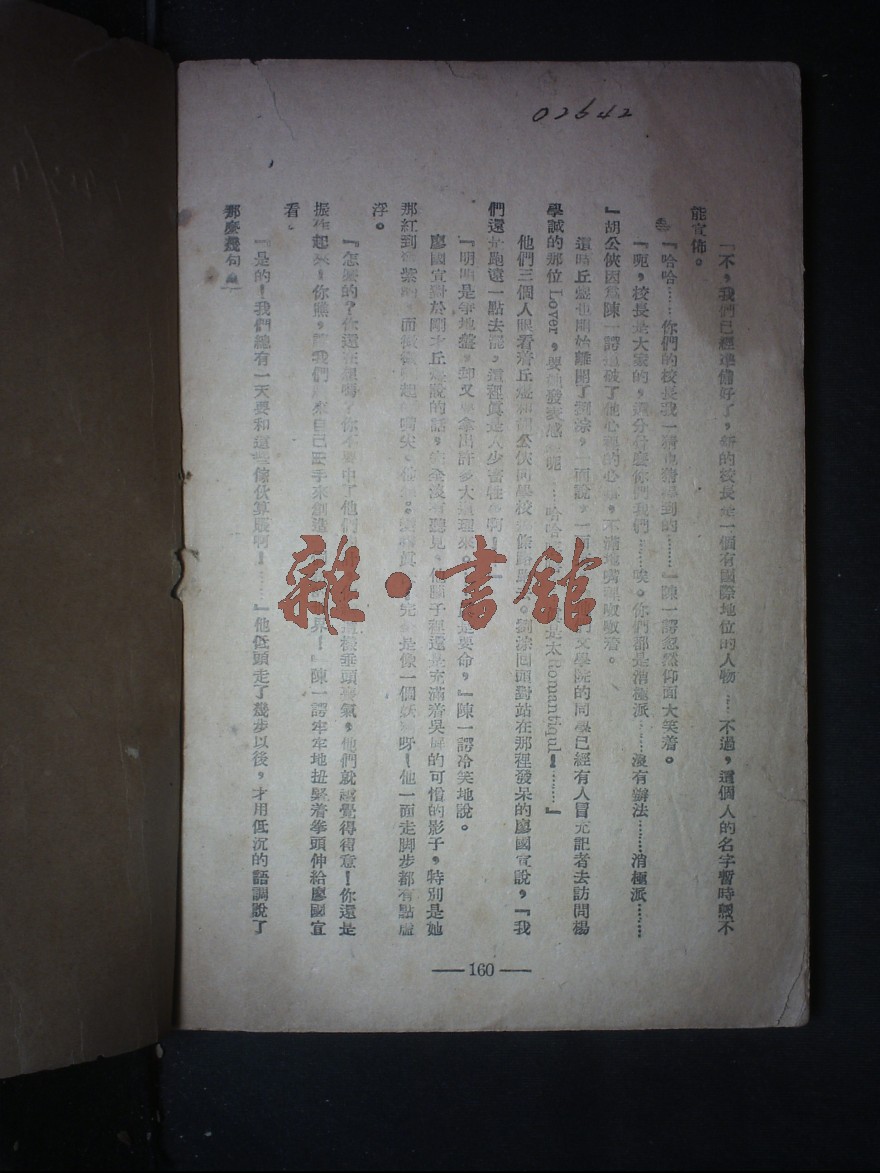 02642
『不，我們已經準備好了，新的校長是一個有國際地位的人物……不過，這個人的名字暫時還不
能宣佈。
『哈哈……你們的校長我一猜也猜得到的……』陳一諤忽然仰面大笑着。
『呃，校長是大家的，還分什麼你們我們……唉。你們都是消極派……沒有辦法……消極派……
』胡公俠因為陳一諤道破了他心裡的心事，不滿地嘴裡
這時丘盛也開始離開了劉淙，一面說，一面 文學院的同學已經有人冒充記者去訪問楊
學誠的那位Lover，要她發表感 呢……哈哈 太Romantiqul！……』
他們三個人眼看着丘盛和胡公俠向學校 條路 。劉淙回頭對站在那裡發呆的廖國宣說，『我
們還是跑遠一點去罷，這裡真是人少畜牲多啊！
『明明是爭地盤，卻又要拿出許多大道理來。 是要命，』陳一諤冷笑地說。
廖國宣對於剛才丘盛說的話，完全沒有聽見，他腦子裡還是充滿着吳屏的可憎的影子，特別是她
那紅到發紫的 面 起 嘴尖。 完全是像一個妖 呀！他一面走脚步都有點虛
浮。
『怎麼的？你還在想嗎？你不要中了他們 這樣垂頭喪氣，他們就感覺得得意！你還是
振作起來！你瞧，讓我們 來自己動手來創造 界！』陳一諤牢牢地扭緊着拳頭伸給廖國宣
看。
『是的！我們總有一天要和這些傢伙算賬啊！……』他低頭走了幾步以後，才用低沉的語調說了
那麼幾句
—160—
雜·書館